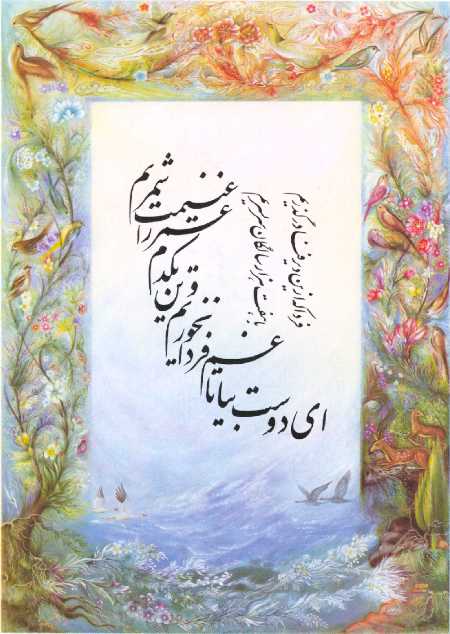 ای دوست بیا تا غم فردا نخوریم
وین یکدم عمر را غنیمت شمریم
فردا که ازین دیر فنا درگذریم
با هفت هزار سالگان سربسریم